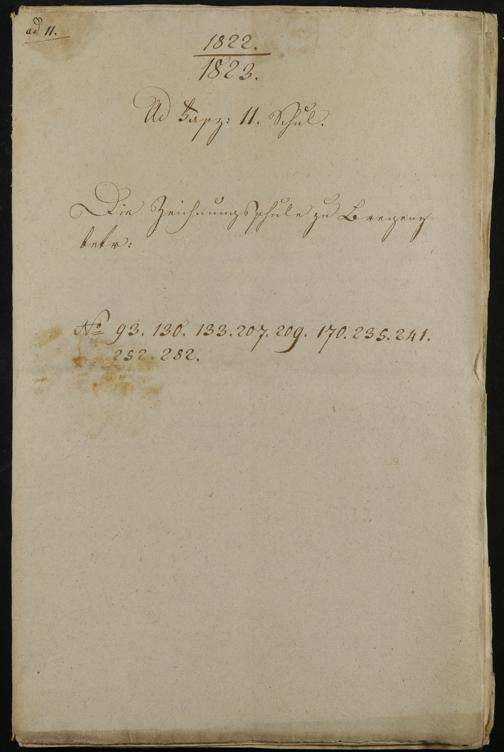 ad 11.
1822.
1823.
Ad Fasz: 11. Schul.
Die Zeichnungsschule zu Bregenz
betr:
No 93. 130. 133. 207. 209. 170. 235. 241.
252. 282.